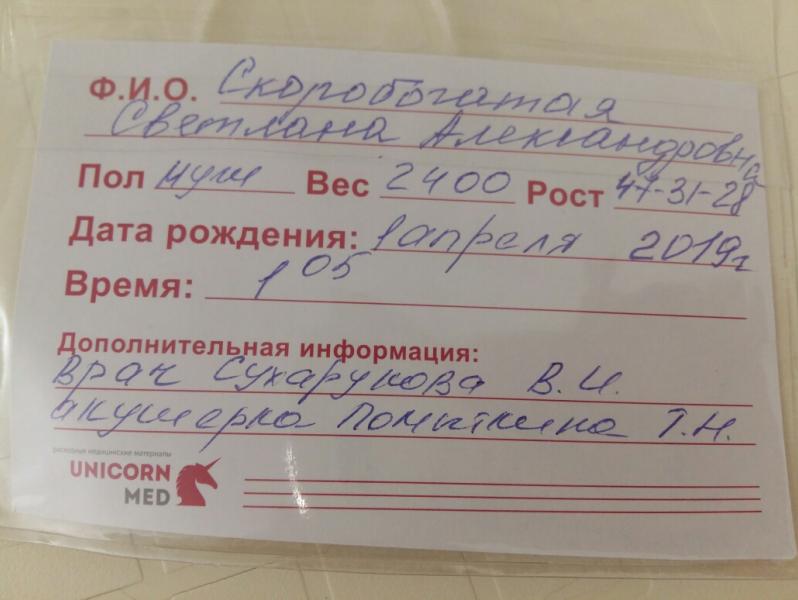 Ф.И.О. Скоробогатая
Светлана Александровна
Пол муж Вес 2400 Рост 47-31-28
Дата рождения: 1 апреля 2019г
Время: 1 05
Дополнительная информация:
Врач Сухарукова В.И.
акушерка Помыткина Т.Н.
расходные медицинские материалы
UNICORN
MED